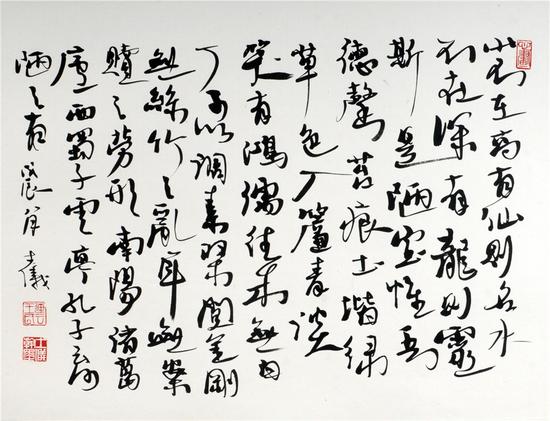 山不在高有仙則名水
不在深有龍則靈
斯是陋室惟吾
德馨苔痕上堦綠
草色入簾青談
笑有鴻儒往來無白
丁可以調素琴閱金剛
無絲竹之亂耳無案
牘之勞形南陽諸葛
廬西蜀子雲亭孔子云何
陋之有 戊辰 士儀